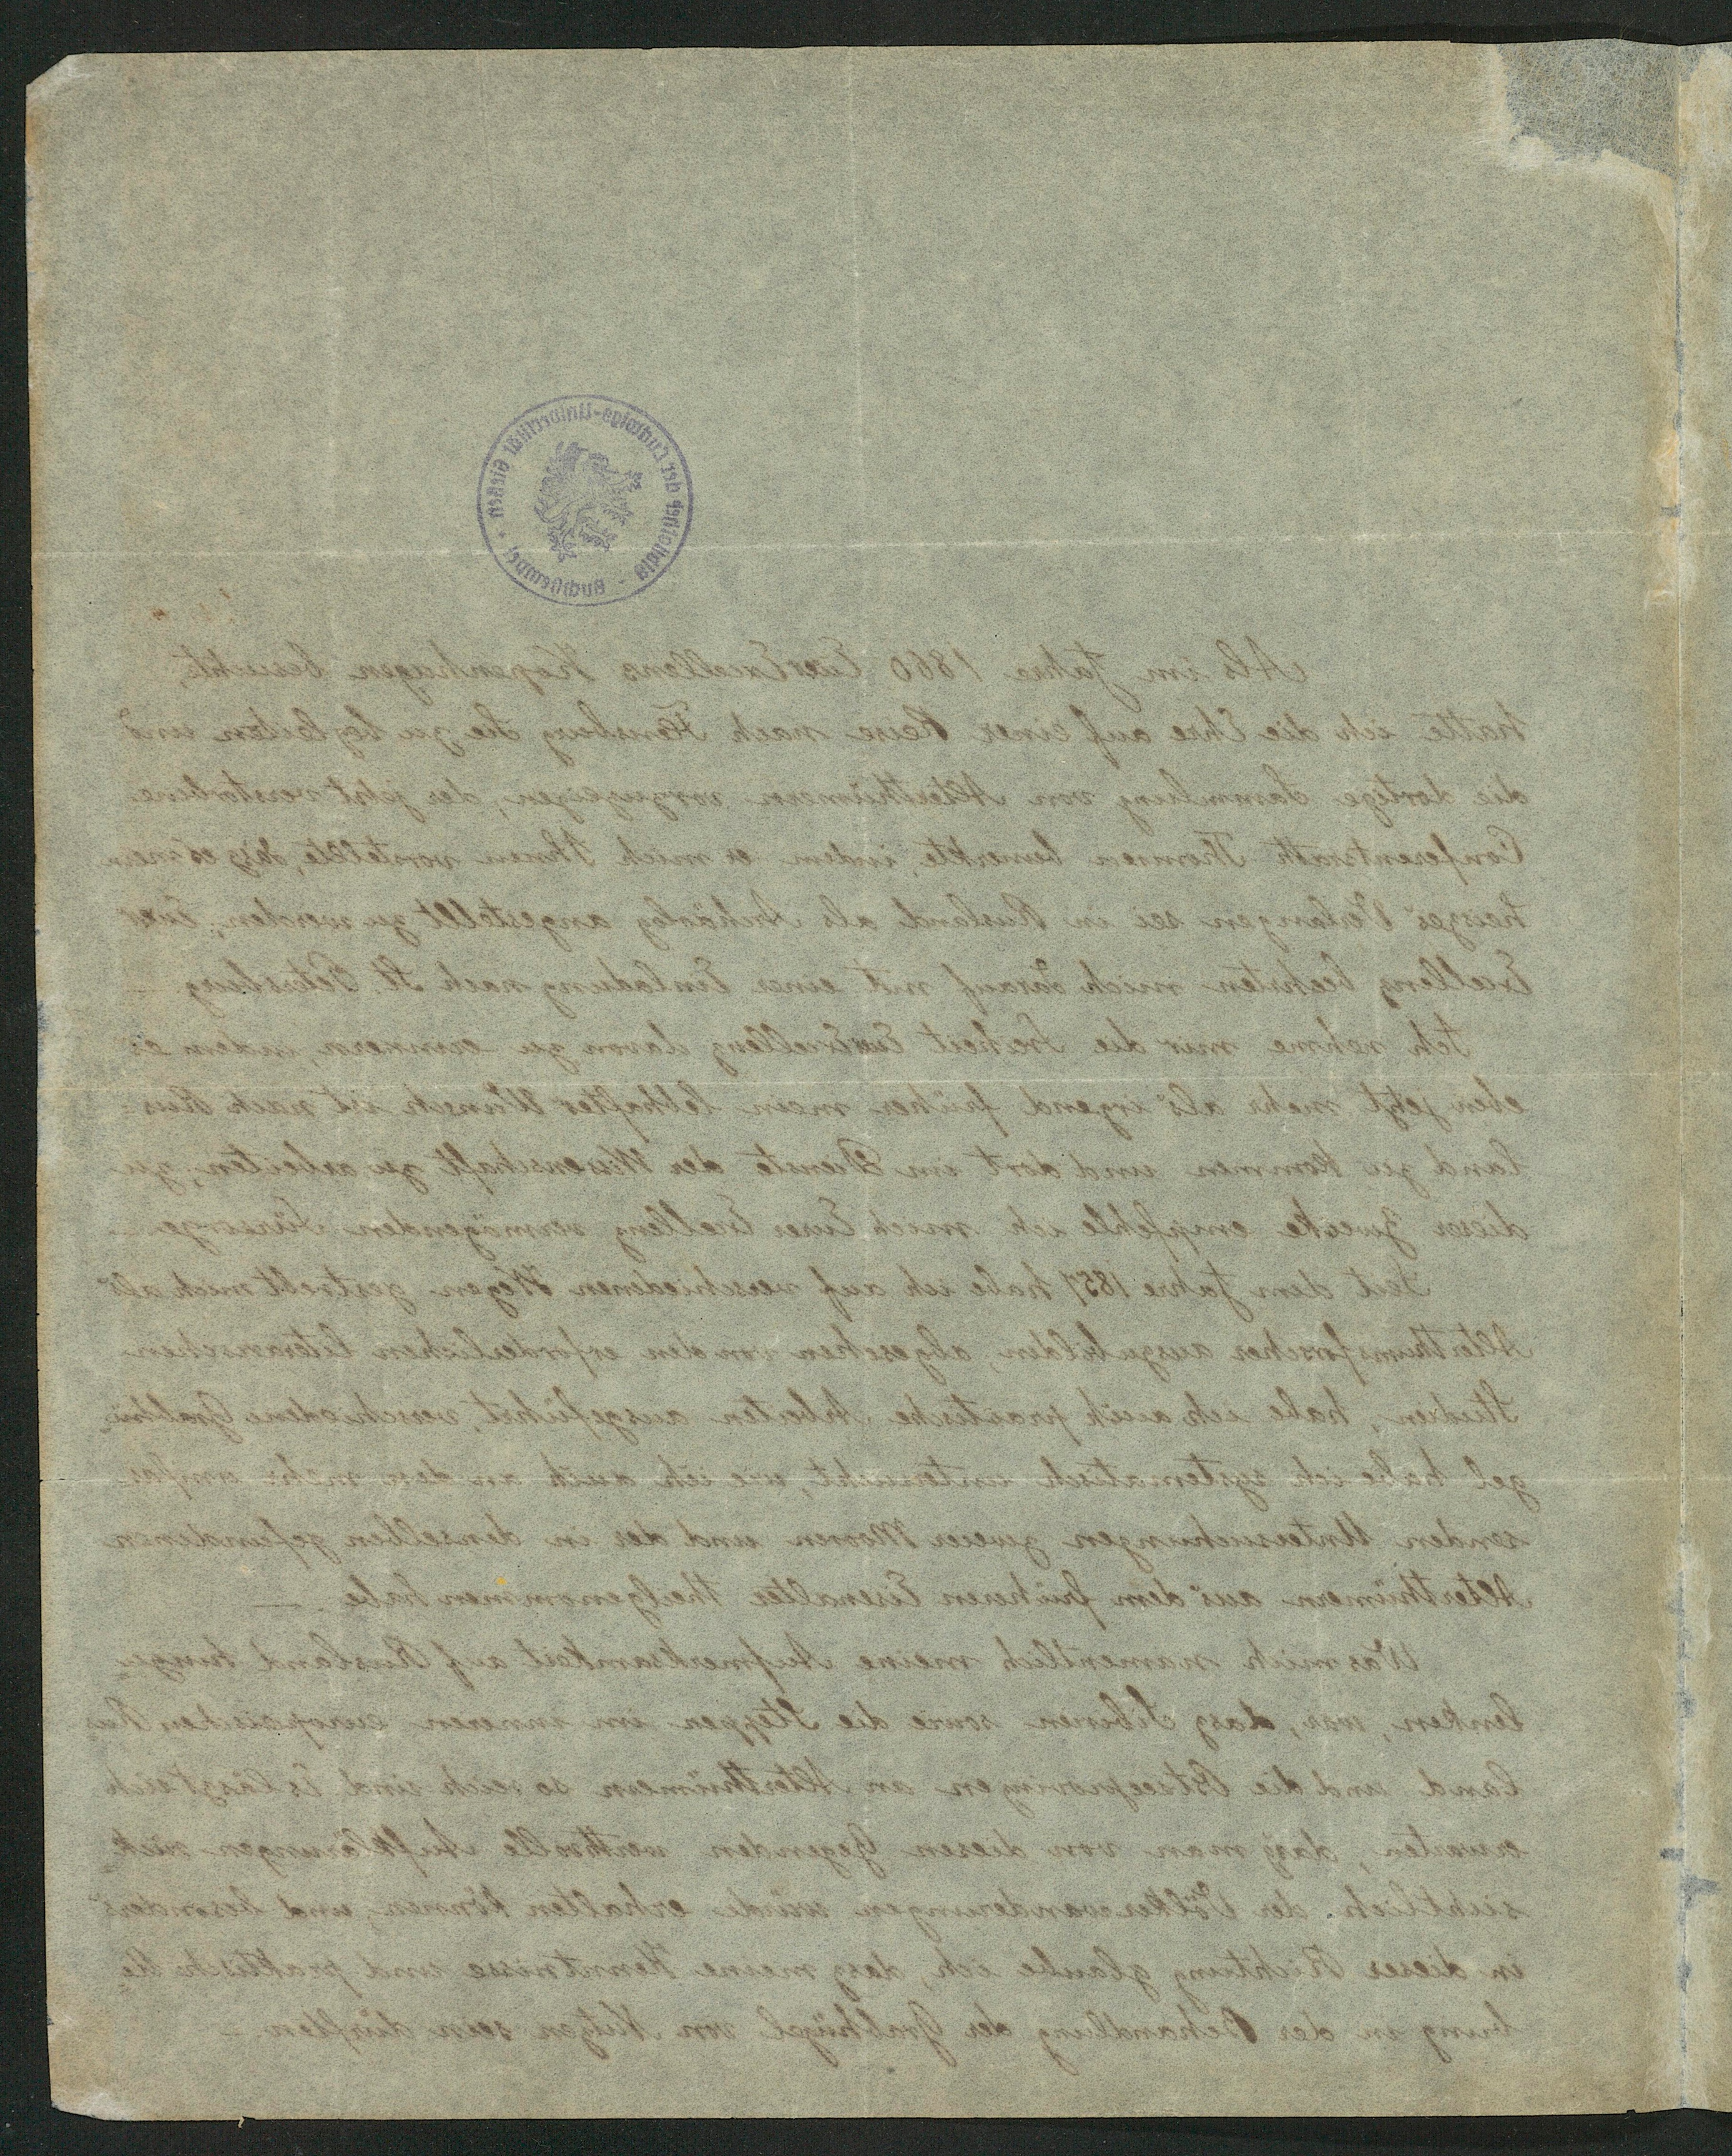 Bibliothek der Ludwigs-Universität Gießen · Tauschstempel ·
Als im Jahre 1860 Eure Excellens Kopenhagen besuchte,
hatte ich die Ehre auf einer Reise nach Flensburg Sie zu begleiten und
die dortige Sammlung von Alterthümern vorzuzeigen; der jetzt verstorbene
Conferentsrath Thomsen bemerkte, indem er mich Ihnen vorstellte, dasz es mein
heiszes Verlangen sei in Rusland als Archäolog angestellt zu werden; Eure
Excellenz beehrten mich darauf mit einer Einladung nach St. Petersburg. —
Ich nehme mir die Freiheit Eure Excellenz davon zu erinnern, indem es
eben jetzt mehr als irgend früher mein lebhafter Wunsch ist nach Rus-
land zu kommen und dort im Dienste der Wissenschaft zu arbeiten; zu
dieser Zwecke empfehle ich mich Eurer Excellenz vermögenden Fürsorge. —
Seit dem Jahre 1857 habe ich auf verschiedenen Wegen gestrebt mich als
Alterthumsforscher auszubilden; abgesehen von den erforderlichen literarischen
Studien, habe ich auch practische Arbeiten ausgeführt; verschiedene Grabhü-
gel habe ich systematisch untersucht, wie ich auch an den mehr umfas-
senden Untersuchungen zweier Mooren und der in denselben gefundenen
Alterthümern aus dem früheren Eisenalter theilgenommen habe. —
Was mich namentlich meine Aufmerksamkeit auf Rusland hinzu-
lenken, war, dasz Sibirien sowie die Steppen im inneren europæischen Rus-
land und die Ostseeprovinzen an Alterthümern so reich sind. Es läszt sich
erwarten, dasz man von diesen Gegenden werthvolle Aufklärungen rück-
sichtlich der Völkerwanderungen würde erhalten können, und besonders
in dieser Richtung glaube ich, dasz meine Kenntnisse und praktische Ue-
bung in der Behandlung der Grabhügel von Nutzen sein dürften. —